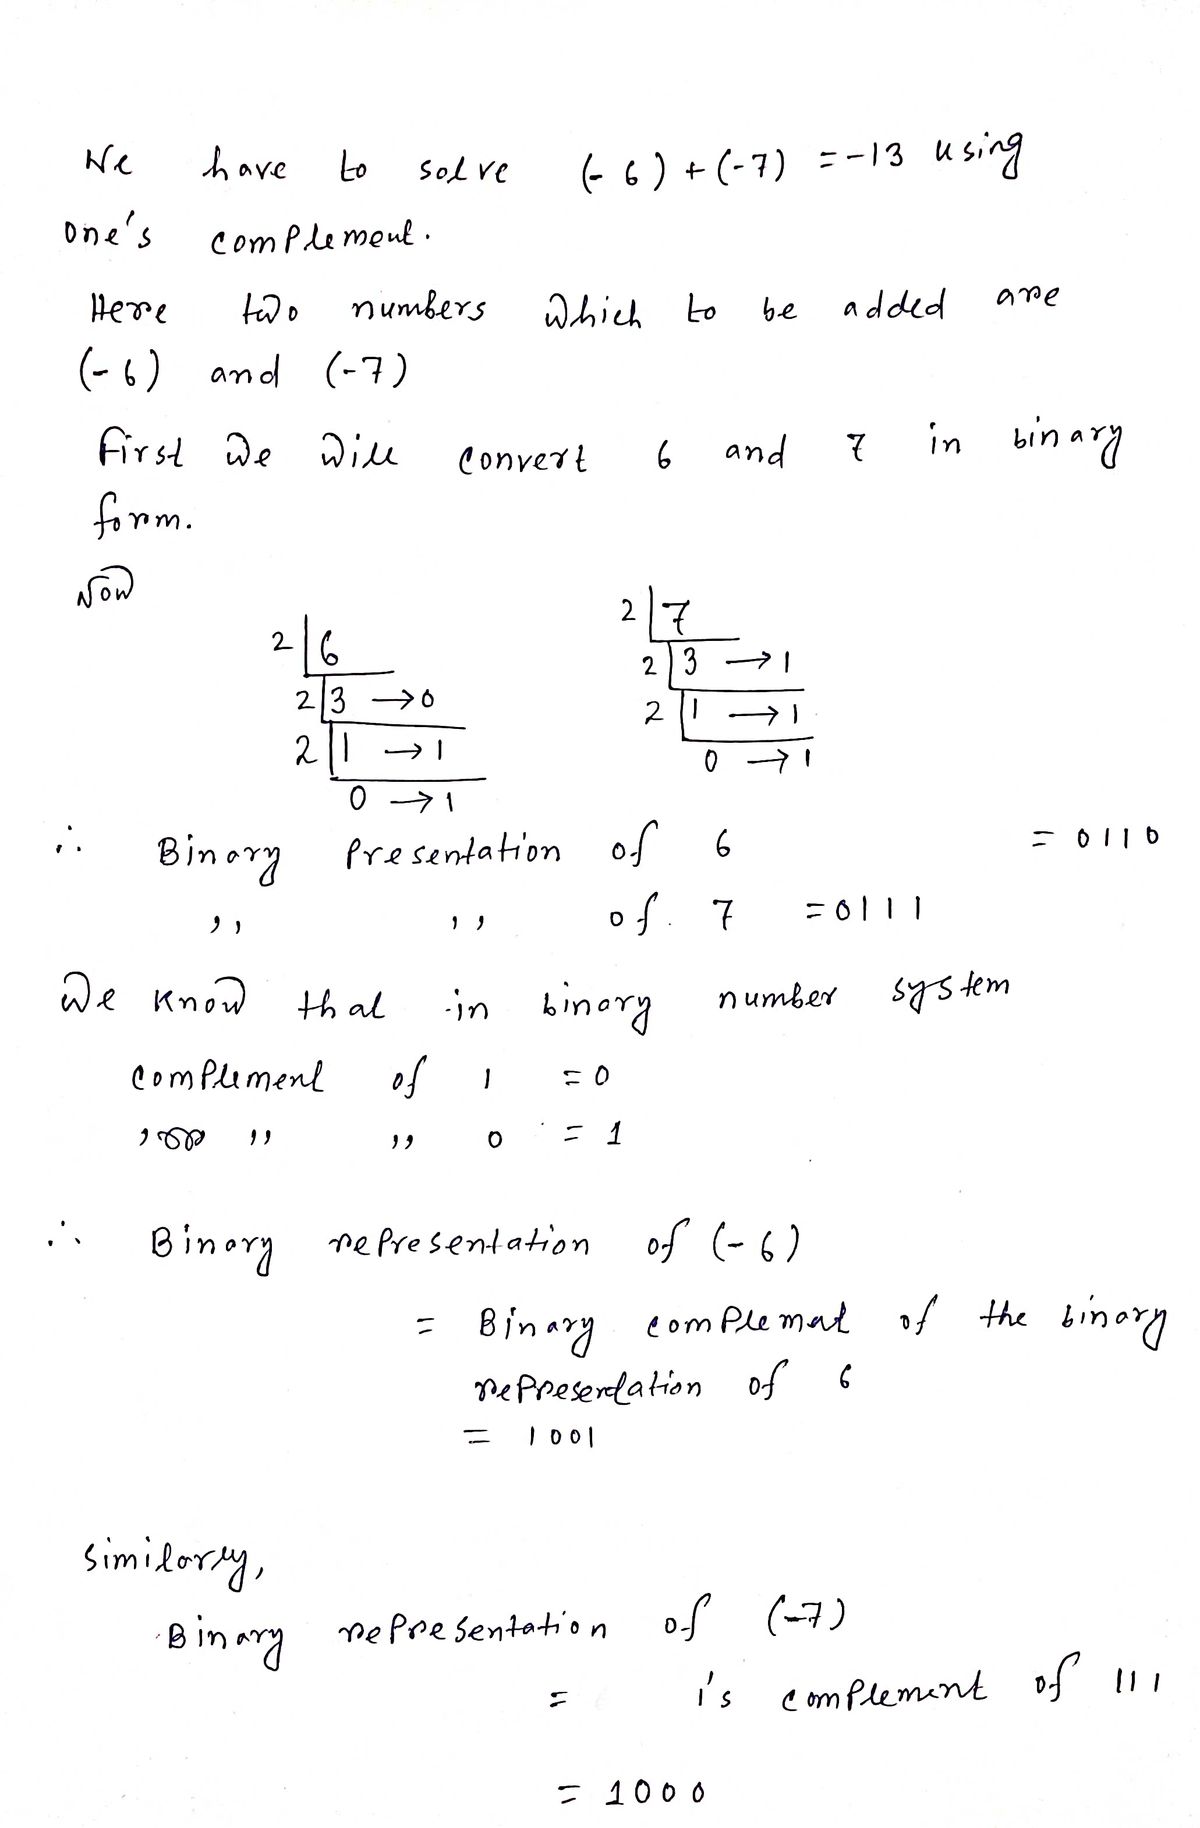 We have to solve (-6) + (-7) = -13 using
one's complement.
Here two numbers which to be added are
(-6) and (-7)
first we will convert 6 and 7 in binary
form.
Now
2 6
2 3 → 0
2 1 → 1
0 → 1
2 7
2 3 → 1
2 1 → 1
0 → 1
∴ Binary Presentation of 6 = 0110
,, ,, of 7 = 0111
We know that in binary number system
complement of 1 = 0
,, ,, 0 = 1
∴ Binary representation of (-6)
= Binary complemat of the binary
representation of 6
= 1001
Similarly,
Binary representation of (-7)
= 1's complement of 111
= 1000